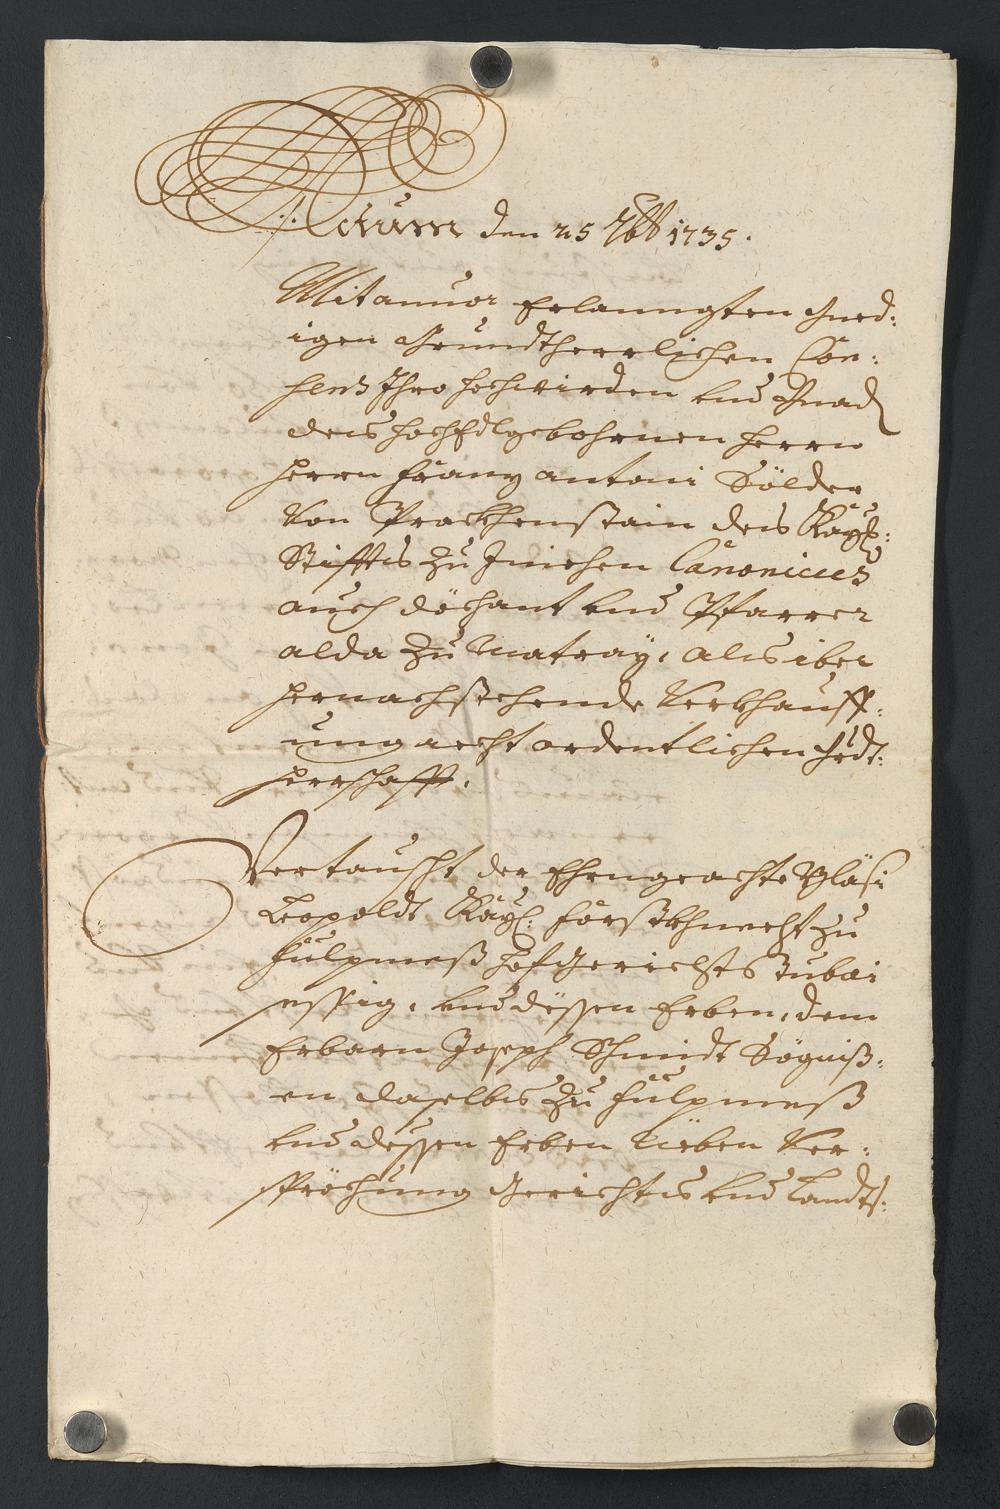 Actum den 25 7bb 1735.
Mitanuor Erlanngten Gned:
igen Grundtherrlichen Con:
sens Ihro Hochwirden vnd Gnad
des HochEdlgebohrnen Herrn
Herrn Franz antoni Sölder
Von Prackhenstain des Kayl:
Stiffts zu Inichen Canonicus
auch döchant vnd Pfarrer
alda zu Matray, als iber
hernachstehende Verkhauff:
ung recht ordentlichen Grdt:
herrschafft.
Vertauscht der Ehrngeachte Bläsi
Leopoldt Kayl: Forstkhnecht zu
Fulpmeß Hofgerichts Stubai
sessig, vnd dessen Erben, dem
Erbarn Joseph Schmidt Sögniß:
en daselbs zu Fulpmeß
vnd dessen Erben Neben Ver:
spröchung Gerichts vnd Landts: